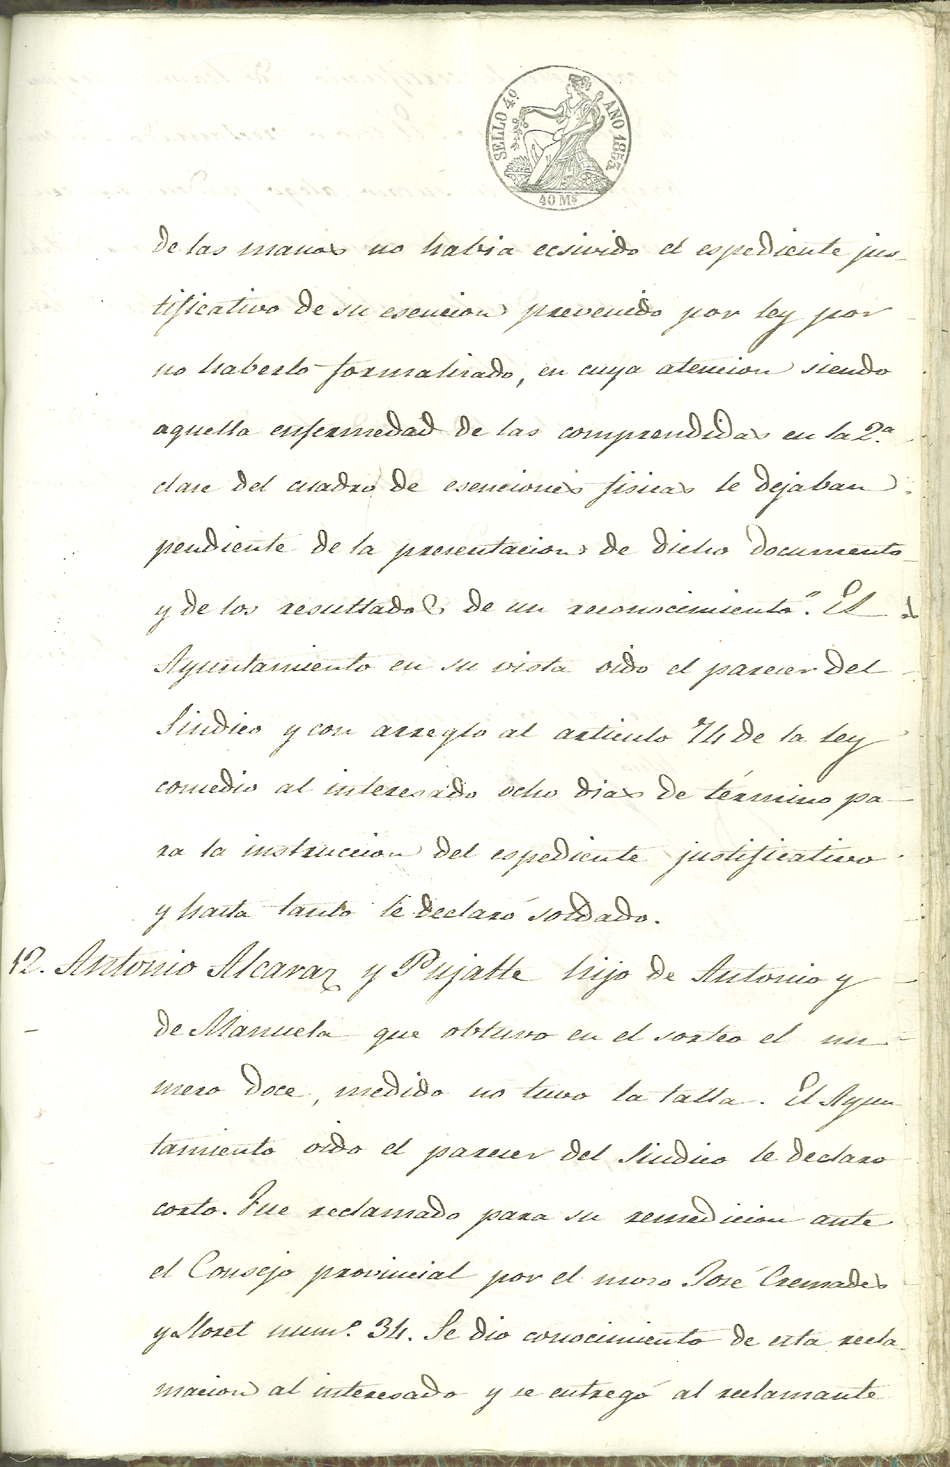 SELLO 4º AÑO 1855
40 Ms
de las manos no habia ecsivido el espediente jus-
tificativo de su esencion prevenido por ley por
no haberlo formalizado, en cuya atencion siendo
aquella enfermedad de las comprendidas en la 2.ª
clase del cuadro de esenciones fisicas le dejaban
pendiente de la presentacion de dicho documento
y de los resultados de un reconocimiento". El
Ayuntamiento en su vista oido el parecer del
Sindico y con arreglo al articulo 74 de la ley
concedio al interesado ocho dias de término pa-
ra la instruccion del espediente justificativo
y hasta tanto le declaró soldado.
12. Antonio Alcaraz y Pujalte hijo de Antonio y
de Manuela que obtuvo en el sorteo el nu-
mero doce, medido no tuvo la talla. El Ayun
tamiento oido el parecer del Sindico le declaro
corto. Fue reclamado para su remedicion ante
el Consejo provincial por el mozo José Cremades
y Lloret num.º 34. Se dio conocimiento de esta recla-
macion al interesado y se entregó al reclamante